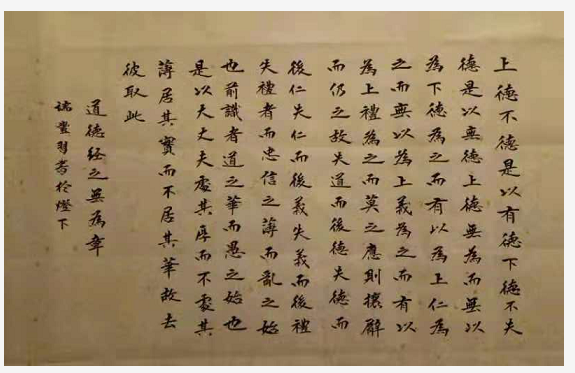 上德不德是以有德下德不失
德是以無德上德無為而無以
為下德為之而有以為上仁為
之而無以為上義為之而有以
為上禮為之而莫之應則攘臂
而仍之故失道而後德失德而
後仁失仁而後義失義而後禮
失禮者而忠信之薄而亂之始
也前識者道之華而愚之始也
是以大丈夫處其厚而不處其
薄居其實而不居其華故去
彼取此
道德经之無為章
習書於燈下